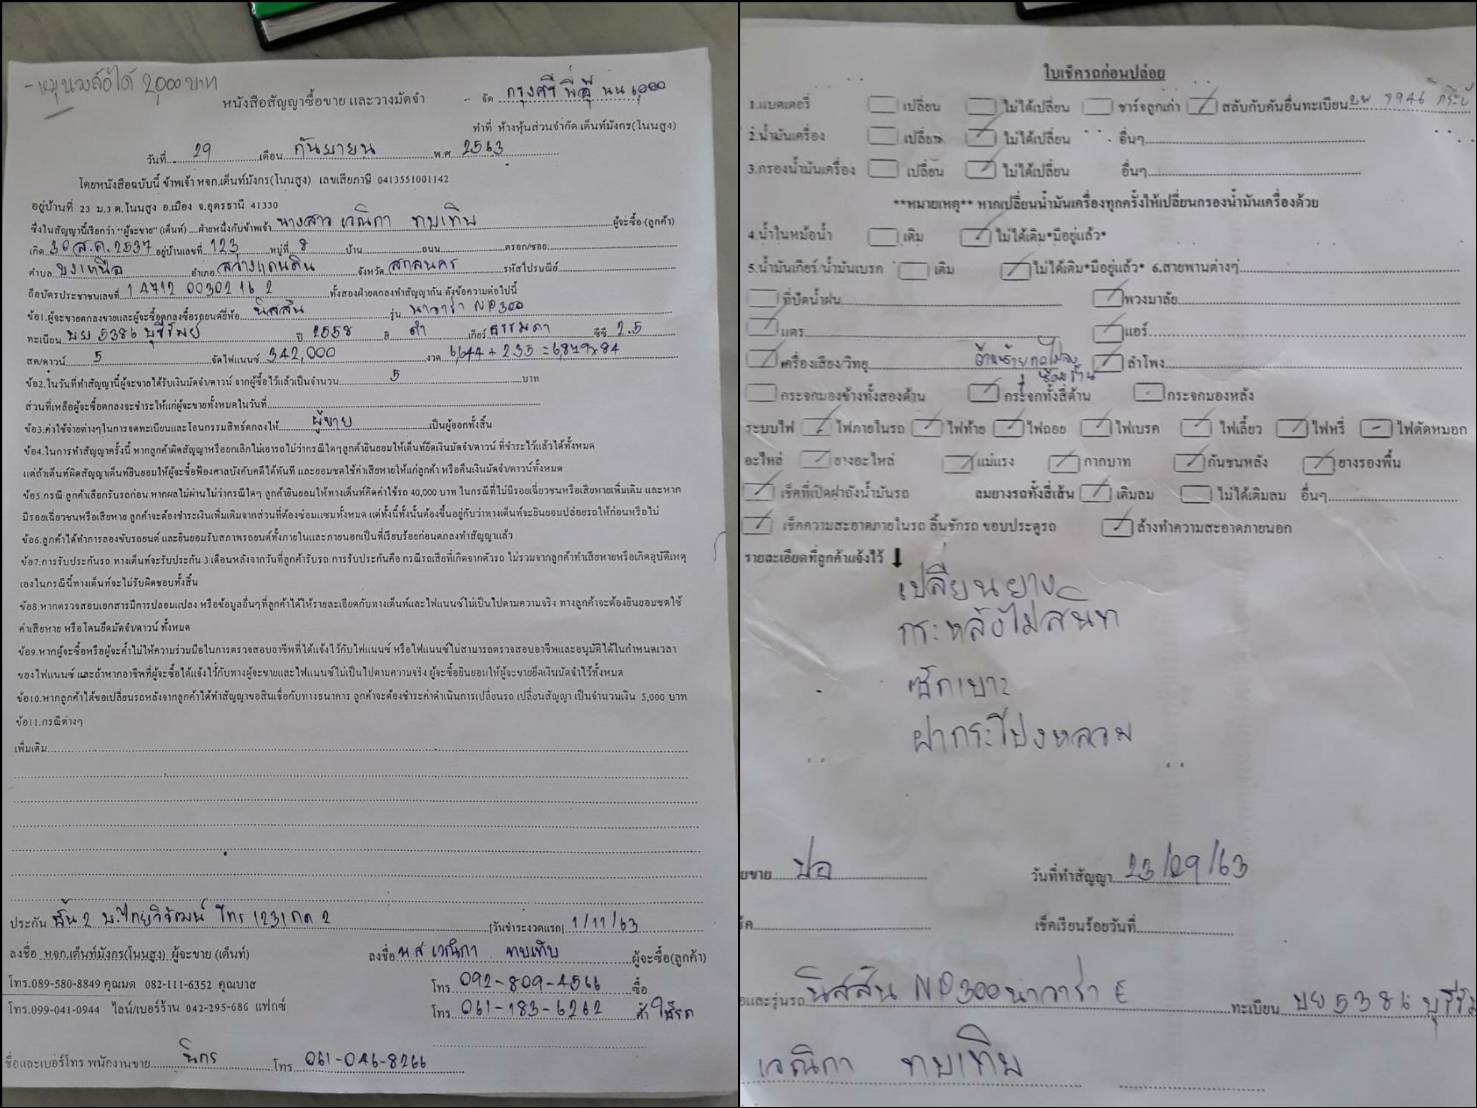 - หมุนวงล้อได้ 2,000 บาท
- จัด กรุงศรี พี่อู๊ นน 6,000
หนังสือสัญญาซื้อขาย และวางมัดจำ
ทำที่ ห้างหุ้นส่วนจำกัด เต็นท์มังกร(โนนสูง)
วันที่ 29 เดือน กันยายน พ.ศ 2563
โดยหนังสือฉบับนี้ ข้าพเจ้า หจก.เต็นท์มังกร(โนนสูง) เลขเสียภาษี 0413551001142
อยู่บ้านที่ 23 ม.3 ต.โนนสูง อ.เมือง จ.อุดรธานี 41330
ซึ่งในสัญญานี้เรียกว่า "ผู้จะขาย" (เต็นท์) ....ฝ่ายหนึ่งกับข้าพเจ้า นางสาว เวณิกา ทบเทิบ ผู้จะซื้อ (ลูกค้า)
เกิด 30 ส.ค. 2537 อยู่บ้านเลขที่ 123 หมู่ที่ 8 บ้าน ถนน ตรอก/ซอย
ตำบล บงเหนือ อำเภอ สว่างแดนดิน จังหวัด สกลนคร รหัสไปรษณีย์
ถือบัตรประชาชนเลขที่ 1 4712 00302 16 2 ทั้งสองฝ่ายตกลงทำสัญญากัน ดังข้อความต่อไปนี้
ข้อ1.ผู้จะขายตกลงขายและผู้จะซื้อตกลงซื้อรถยนต์ยี่ห้อ นิสสัน รุ่น นาวาร่า NP300
ทะเบียน บย 5386 บุรีรัมย์ ปี 2558 สี ดำ เกียร์ ธรรมดา ซีซี 2.5
สด/ดาวน์ 5 จัดไฟแนนซ์ 342,000 งวด 6,644 + 235 = 6,879x84
ข้อ2.ในวันที่ทำสัญญานี้ผู้จะขายได้รับเงินมัดจำ/ดาวน์ จากผู้ซื้อไว้แล้วเป็นจำนวน 5 บาท
ส่วนที่เหลือผู้จะซื้อตกลงจะชำระให้แก่ผู้จะขายทั้งหมดในวันที่
ข้อ3.ค่าใช้จ่ายต่างๆในการจดทะเบียนและโอนกรรมสิทธิ์ตกลงให้ ผู้ขาย เป็นผู้ออกทั้งสิ้น
ข้อ4.ในการทำสัญญาครั้งนี้ หากลูกค้าผิดสัญญาหรือยกเลิกไม่เอารถไม่ว่ากรณีใดๆ ลูกค้ายินยอมให้เต็นท์ยึดเงินมัดจำ/ดาวน์ ที่ชำระไว้แล้วได้ทั้งหมด
แต่ถ้าเต็นท์ผิดสัญญาเต็นท์ยินยอมให้ผู้จะซื้อฟ้องศาลบังคับคดีได้ทันที และยอมชดใช้ค่าเสียหายให้แก่ลูกค้า หรือคืนเงินมัดจำ/ดาวน์ทั้งหมด
ข้อ5.กรณี ลูกค้าเลือกรับรถก่อน หากผลไม่ผ่านไม่ว่ากรณีใดๆ ลูกค้ายินยอมให้ทางเต็นท์คิดค่าใช้รถ 40,000 บาท ในกรณีที่ไม่มีรอยเฉี่ยวชนหรือเสียหายเพิ่มเติม และหาก
มีรอยเฉี่ยวชนหรือเสียหาย ลูกค้าจะต้องชำระเงินเพิ่มเติมจากส่วนที่ต้องซ่อมแซมทั้งหมด แต่ทั้งนี้ทั้งนั้นต้องขึ้นอยู่กับว่าทางเต็นท์จะยินยอมปล่อยรถให้ก่อนหรือไม่
ข้อ6.ลูกค้าได้ทำการลองขับรถยนต์ และยินยอมรับสภาพรถยนต์ทั้งภายในและภายนอกเป็นที่เรียบร้อยก่อนตกลงทำสัญญาแล้ว
ข้อ7.การรับประกันรถ ทางเต็นท์จะรับประกัน 3 เดือนหลังจากวันที่ลูกค้ารับรถ การรับประกันคือ กรณีรถเสียที่เกิดจากตัวรถ ไม่รวมจากลูกค้าทำเสียหายหรือเกิดอุบัติเหตุ
เองในกรณีนี้ทางเต็นท์จะไม่รับผิดชอบทั้งสิ้น
ข้อ8.หากตรวจสอบเอกสารมีการปลอมแปลง หรือข้อมูลอื่นๆที่ลูกค้าได้ให้รายละเอียดกับทางเต็นท์และไฟแนนซ์ไม่เป็นไปตามความจริง ทางลูกค้าจะต้องยินยอมชดใช้
ค่าเสียหาย หรือโดนยึดมัดจำ/ดาวน์ ทั้งหมด
ข้อ9.หากผู้จะซื้อหรือผู้จะค้ำไม่ให้ความร่วมมือในการตรวจสอบอาชีพที่ได้แจ้งไว้กับไฟแนนซ์ หรือไฟแนนซ์ไม่สามารถตรวจสอบอาชีพและอนุมัติได้ในกำหนดเวลา
ของไฟแนนซ์ และถ้าหากอาชีพที่ผู้จะซื้อได้แจ้งไว้กับทางผู้จะขายและไฟแนนซ์ไม่เป็นไปตามความจริง ผู้จะซื้อยินยอมให้ผู้จะขายยึดเงินมัดจำไว้ทั้งหมด
ข้อ10.หากลูกค้าได้ขอเปลี่ยนรถหลังจากลูกค้าได้ทำสัญญาขอสินเชื่อกับทางธนาคาร ลูกค้าจะต้องชำระค่าดำเนินการเปลี่ยนรถ เปลี่ยนสัญญา เป็นจำนวนเงิน 5,000 บาท
ข้อ11.กรณีต่างๆ
เพิ่มเติม
ประกัน ชั้น 2 บ.ไทยวิวัฒน์ โทร 1231 กด 2 (วันชำระงวดแรก) 1/11/63
ลงชื่อ หจก.เต็นท์มังกร(โนนสูง) ผู้จะขาย (เต็นท์) ลงชื่อ น.ส เวณิกา ทบเทิบ ผู้จะซื้อ(ลูกค้า)
โทร.089-580-8849 คุณมด 082-111-6352 คุณบาส โทร. 092-809-4566 ซื้อ
โทร.099-041-0944 ไลน์/เบอร์ร้าน 042-295-686 แฟกซ์ โทร. 061-183-6262 ค้ำ
ชื่อและเบอร์โทร พนักงานขาย นิกร โทร 061-046-8266
ใบเช็ครถก่อนปล่อย
1.แบตเตอรี่ เปลี่ยน ไม่ได้เปลี่ยน ชาร์จลูกเก่า สลับกับคันอื่นทะเบียน บพ 9946
2.น้ำมันเครื่อง เปลี่ยน ไม่ได้เปลี่ยน อื่นๆ
3.กรองน้ำมันเครื่อง เปลี่ยน ไม่ได้เปลี่ยน อื่นๆ
**หมายเหตุ** หากเปลี่ยนน้ำมันเครื่องทุกครั้งให้เปลี่ยนกรองน้ำมันเครื่องด้วย
4.น้ำในหม้อน้ำ เติม ไม่ได้เติม*มีอยู่แล้ว*
5.น้ำมันเกียร์/น้ำมันเบรก เติม ไม่ได้เติม*มีอยู่แล้ว* 6.สายพานต่างๆ
ที่ปัดน้ำฝน พวงมาลัย
แตร แอร์
เครื่องเสียง/วิทยุ ลำโพง
กระจกมองข้างทั้งสองด้าน กระจกทั้งสี่ด้าน กระจกมองหลัง
ระบบไฟ ไฟภายในรถ ไฟท้าย ไฟถอย ไฟเบรค ไฟเลี้ยว ไฟหรี่ ไฟตัดหมอก
อะไหล่ ยางอะไหล่ แม่แรง กากบาท กันชนหลัง ยางรองพื้น
เช็คที่เปิดฝาถังน้ำมันรถ ลมยางรถทั้งสี่เส้น เติมลม ไม่ได้เติมลม อื่นๆ
เช็คความสะอาดภายในรถ ลิ้นชักรถ ขอบประตูรถ ล้างทำความสะอาดภายนอก
รายละเอียดที่ลูกค้าแจ้งไว้
เปลี่ยนยาง
กระหลั่งไม่สนิท
ซักเบาะ
ฝากระโปรงหลวม
ยขาย ปอ วันที่ทำสัญญา 23/09/63
เช็คเรียบร้อยวันที่
อและรุ่นรถ นิสสัน NP300 นาวาร่า E ทะเบียน บย 5386 บุรีรัม
เวณิกา ทบเทิบ